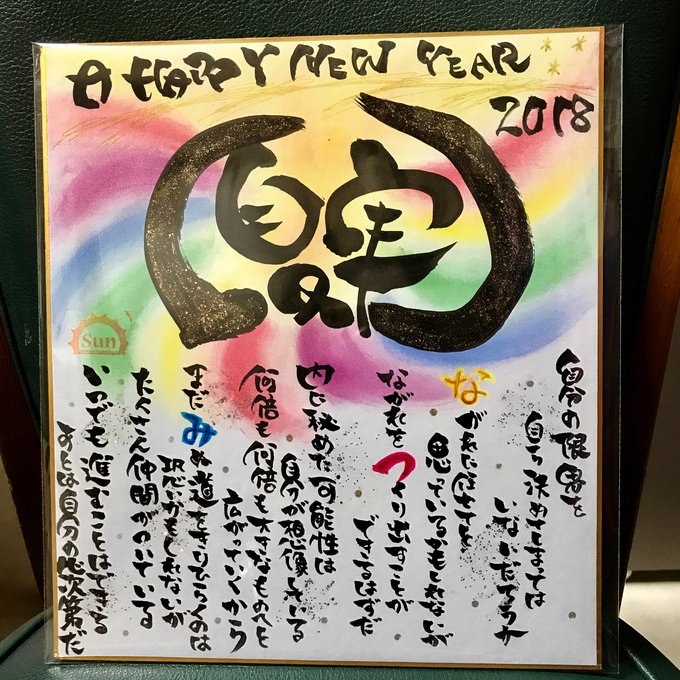 A HAPPY NEW YEAR
2018
Sun
自分の限界を
自ら決めてしまっては
いないだろうか
ながれに任せてと
思っているかもしれないが
ながれを つくり出すことが
できるはずだ
内に秘めた可能性は
自分が想像している
何倍も何倍も大きなものへと
広がっていくから
まだみぬ道をきりひらくのは
恐いかもしれないが
たくさん仲間がついている
いつでも進むことはできる
あとは自分の心次第だ